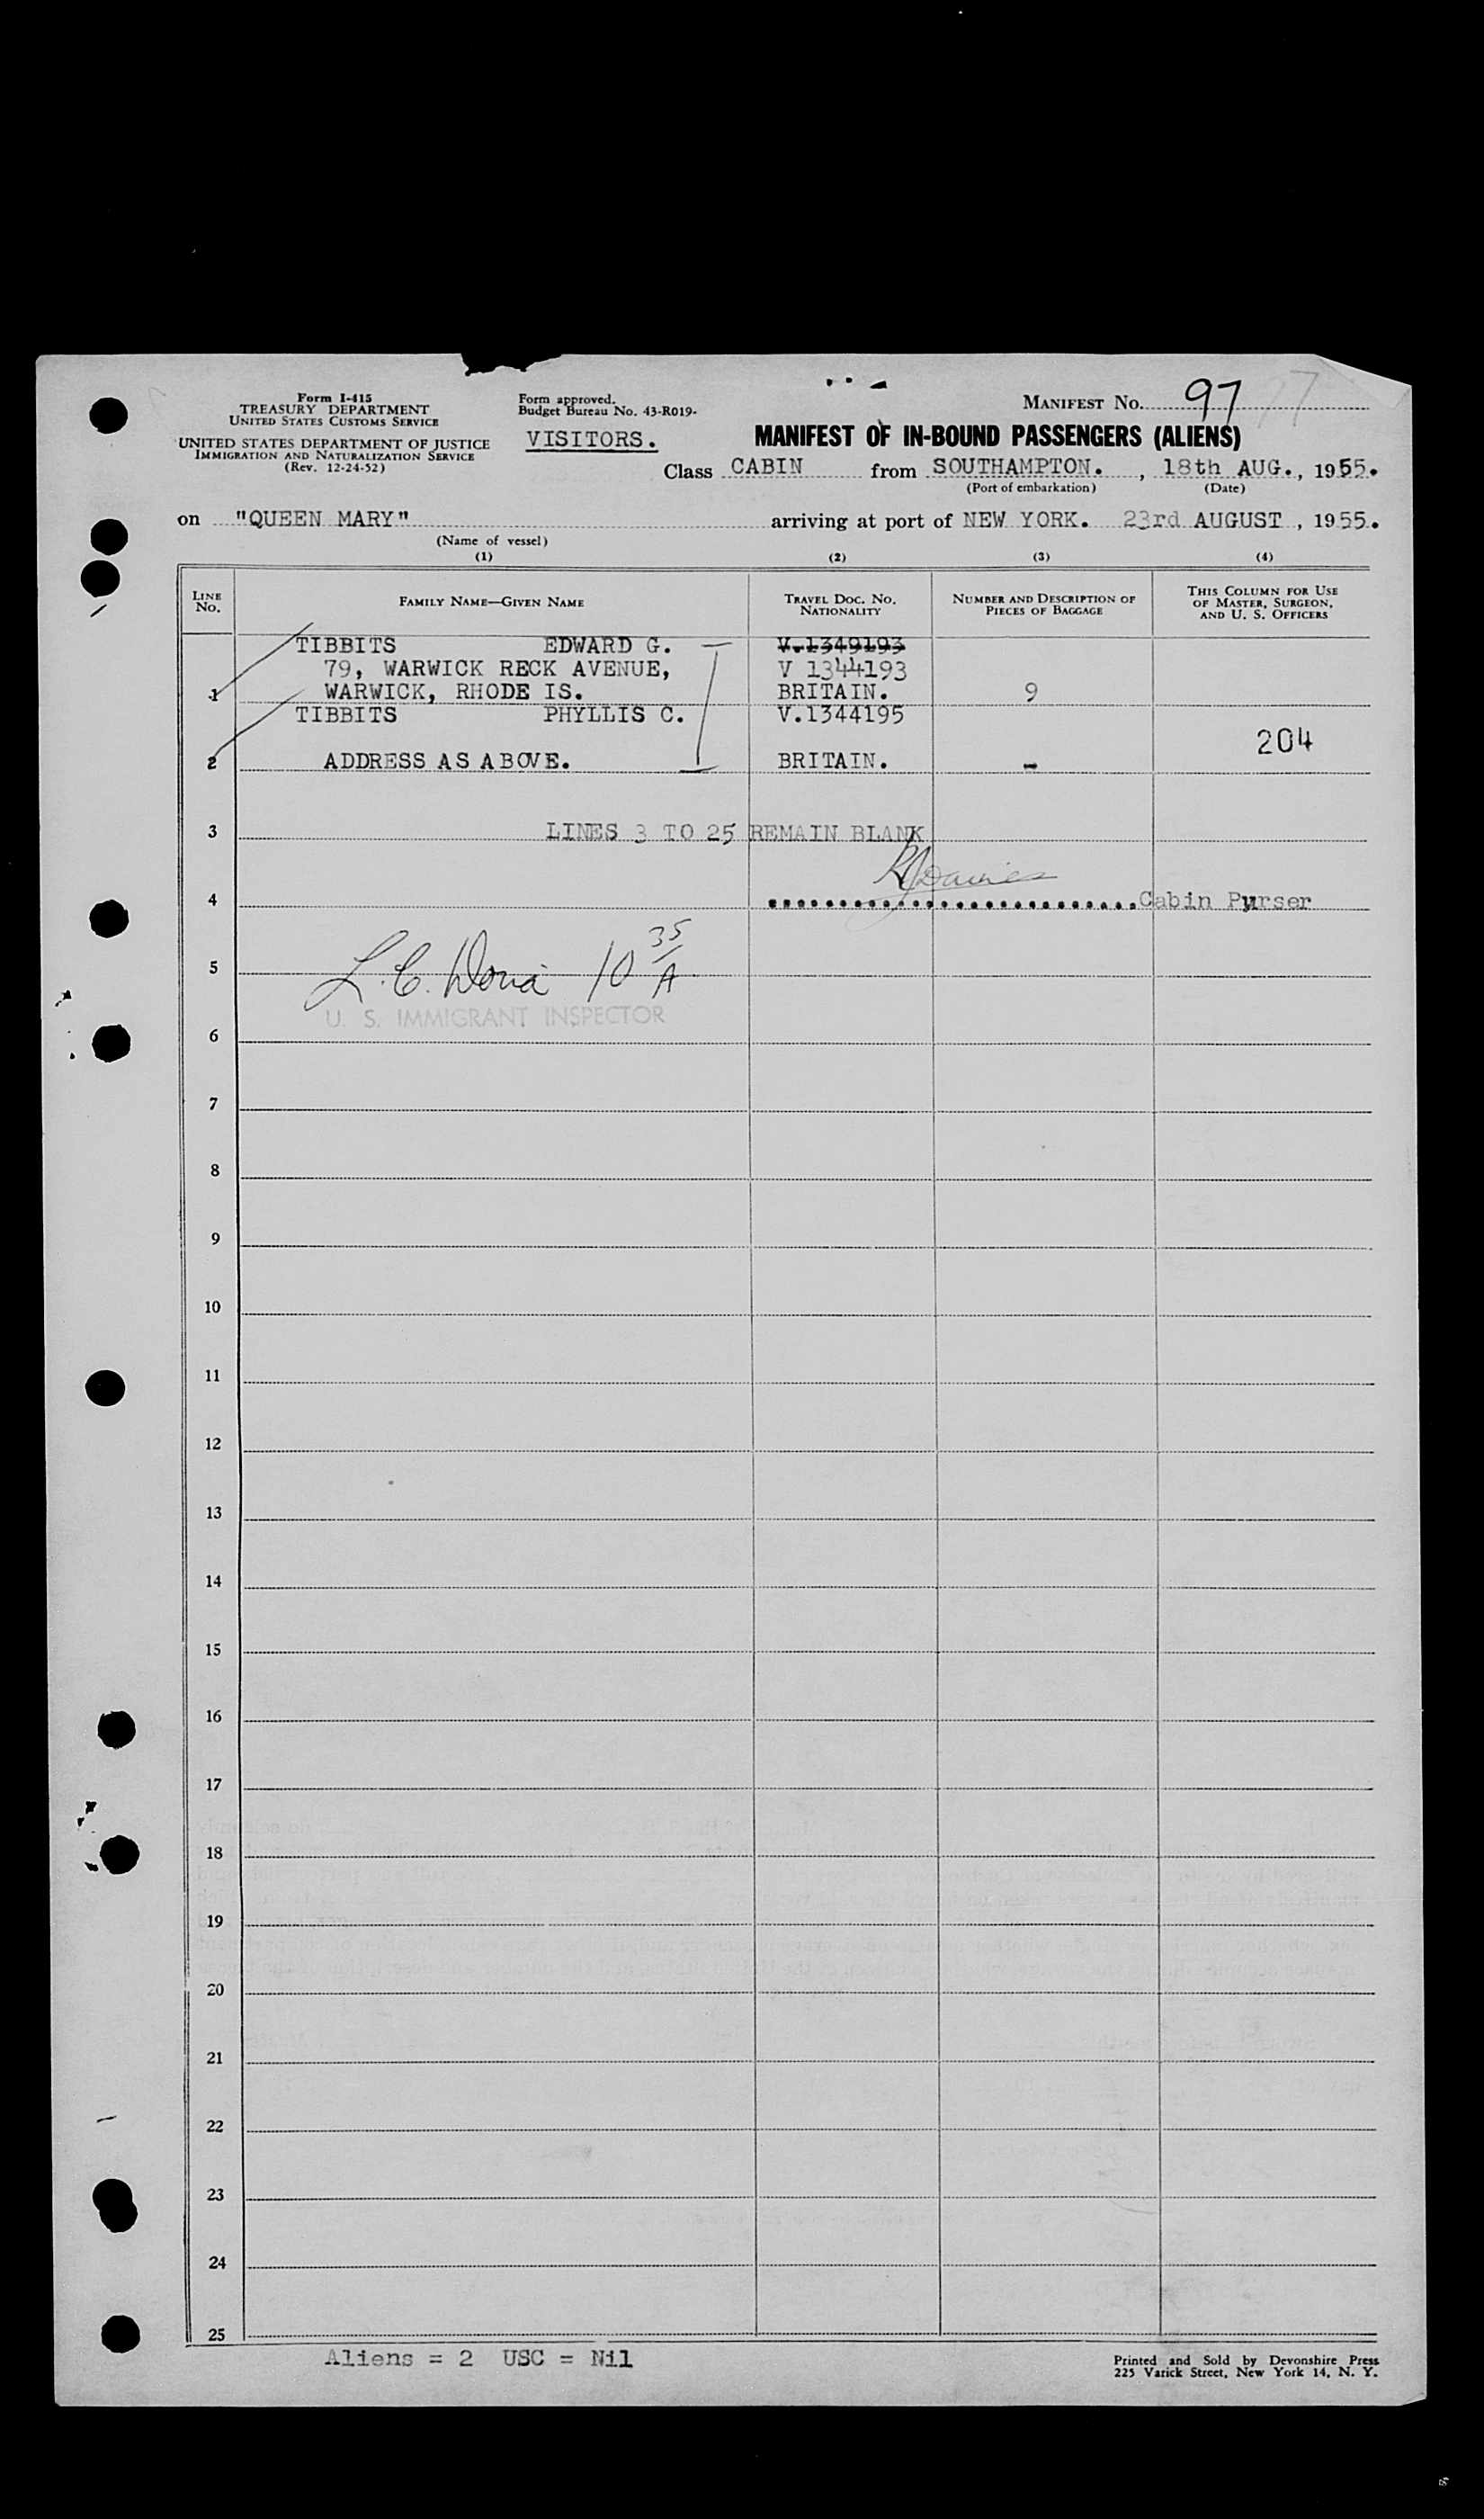 Form I-415
TREASURY DEPARTMENT
UNITED STATES CUSTOMS SERVICE
UNITED STATES DEPARTMENT OF JUSTICE
IMMIGRATION AND NATURALIZATION SERVICE
(Rev. 12-24-52)
Form approved.
Budget Bureau No. 43-R019-
VISITORS.
MANIFEST NO. 97
MANIFEST OF IN-BOUND PASSENGERS (ALIENS)
Class CABIN from SOUTHAMPTON. , 18th AUG., 1955.
(Port of embarkation) (Date)
on "QUEEN MARY" arriving at port of NEW YORK. 23rd AUGUST , 1955.
(Name of vessel)
(1) (2) (3) (4)
LINE NO. FAMILY NAME—GIVEN NAME TRAVEL DOC. NO. NATIONALITY NUMBER AND DESCRIPTION OF PIECES OF BAGGAGE THIS COLUMN FOR USE OF MASTER, SURGEON, AND U. S. OFFICERS
TIBBITS EDWARD G. V.1349193
79, WARWICK RECK AVENUE, V 1344193
1 WARWICK, RHODE IS. BRITAIN. 9
TIBBITS PHYLLIS C. V.1344195
204
2 ADDRESS AS ABOVE. BRITAIN. -
3 LINES 3 TO 25 REMAIN BLANK
4 Davies Cabin Purser
5 L. C. 10 35/A
U. S. IMMIGRANT INSPECTOR
6
7
8
9
10
11
12
13
14
15
16
17
18
19
20
21
22
23
24
25
Aliens = 2 USC = Nil
Printed and Sold by Devonshire Press
225 Varick Street, New York 14, N. Y.